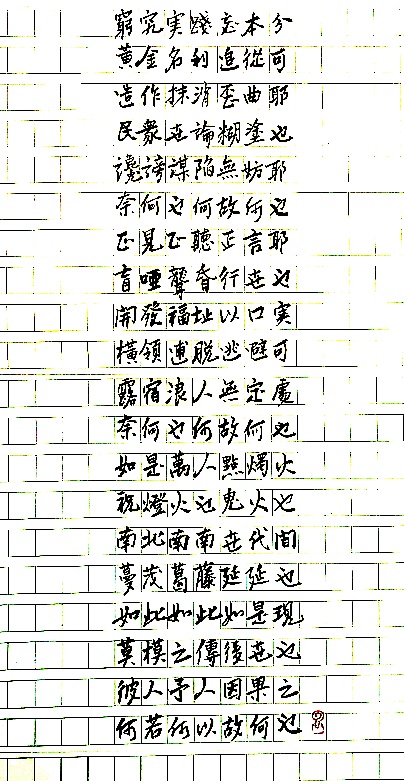 窮究実踐忘本分
黃金名利追從可
造作抹消歪曲耶
民衆世論糊塗也
讒謗謀陷無妨耶
奈何也何故何也
正見正聽正言耶
盲啞聾昏行世也
開發福址以口実
橫領逋脫逃避可
露宿浪人無定處
奈何也何故何也
如是萬人點燭火
祝燈火也鬼火也
南北南南世代間
蔓茂葛藤延延也
如此如此如是現
莫模之傳後世也
彼人予人因果之
何若何以故何也